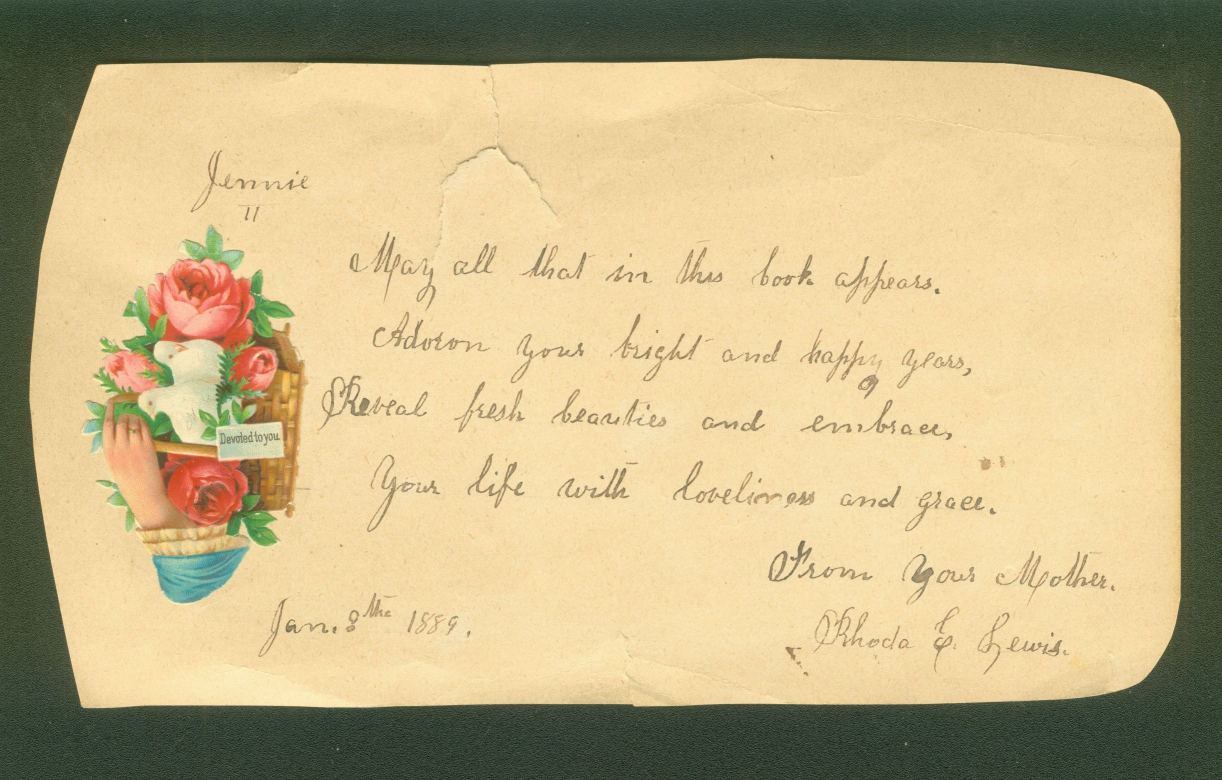 Jennie
"
May all that in this book appears.
Adoron your bright and happy years,
Reveal fresh beauties and embrace,
Your life with loveliness and grace.
Devoted to you.
From Your Mother.
Jan. 8the 1889.
Rhoda E. Lewis.